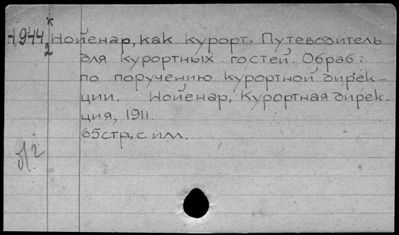 х
-1944 Нойенар, как курорт. Путеводитель
2
для курортных гостей. Обраб:
по поручению курортной дирек-
ции. Нойенар, Курортная дирек-
ция, 1911.
65стр, с илл.